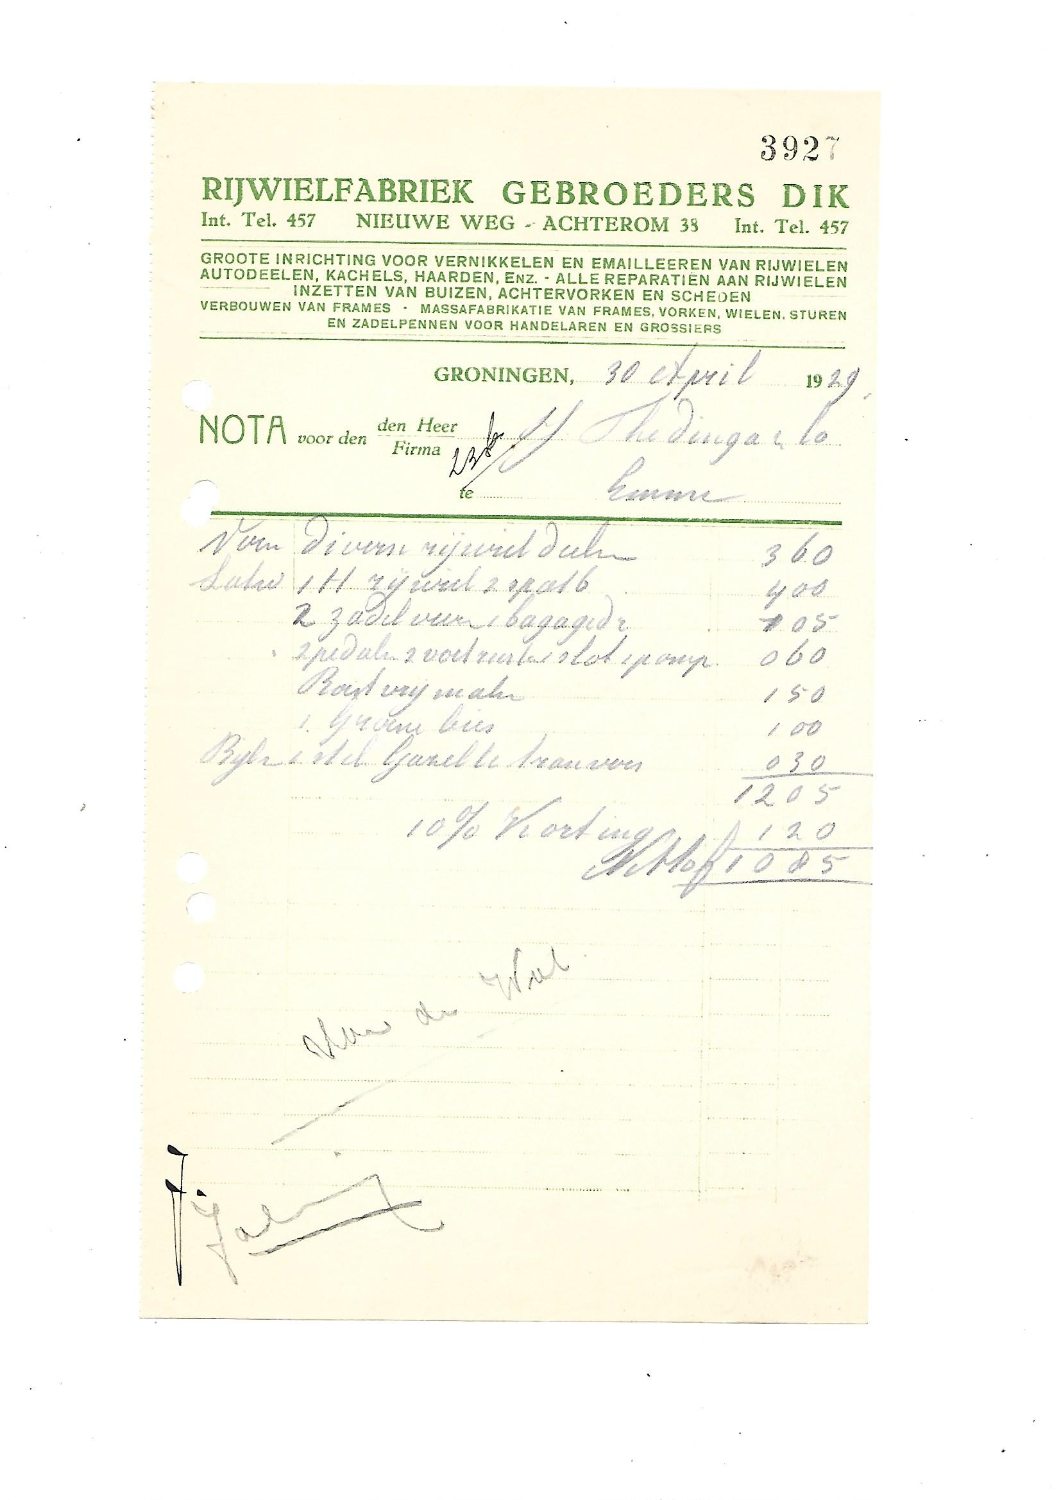 3927
RIJWIELFABRIEK GEBROEDERS DIK
Int. Tel. 457 NIEUWE WEG - ACHTEROM 38 Int. Tel. 457
GROOTE INRICHTING VOOR VERNIKKELEN EN EMAILLEEREN VAN RIJWIELEN
AUTODEELEN, KACHELS, HAARDEN, ENZ. - ALLE REPARATIËN AAN RIJWIELEN
INZETTEN VAN BUIZEN, ACHTERVORKEN EN SCHEDEN
VERBOUWEN VAN FRAMES - MASSAFABRIKATIE VAN FRAMES, VORKEN, WIELEN, STUREN
EN ZADELPENNEN VOOR HANDELAREN EN GROSSIERS
GRONINGEN, 30 April 1929.
NOTA voor den den Heer
Firma Thedinga & Co
te
divers rijwieldeelen 360
1 H rijwiel 400
2 zadelveeren 1 bagagedr 105
2 pedalen 1 slot 1 pomp 060
Roestvrij maken 150
1 Groene bies 100
1 stel Gazelle 030
1205
10% Korting 120
Netto f 1085